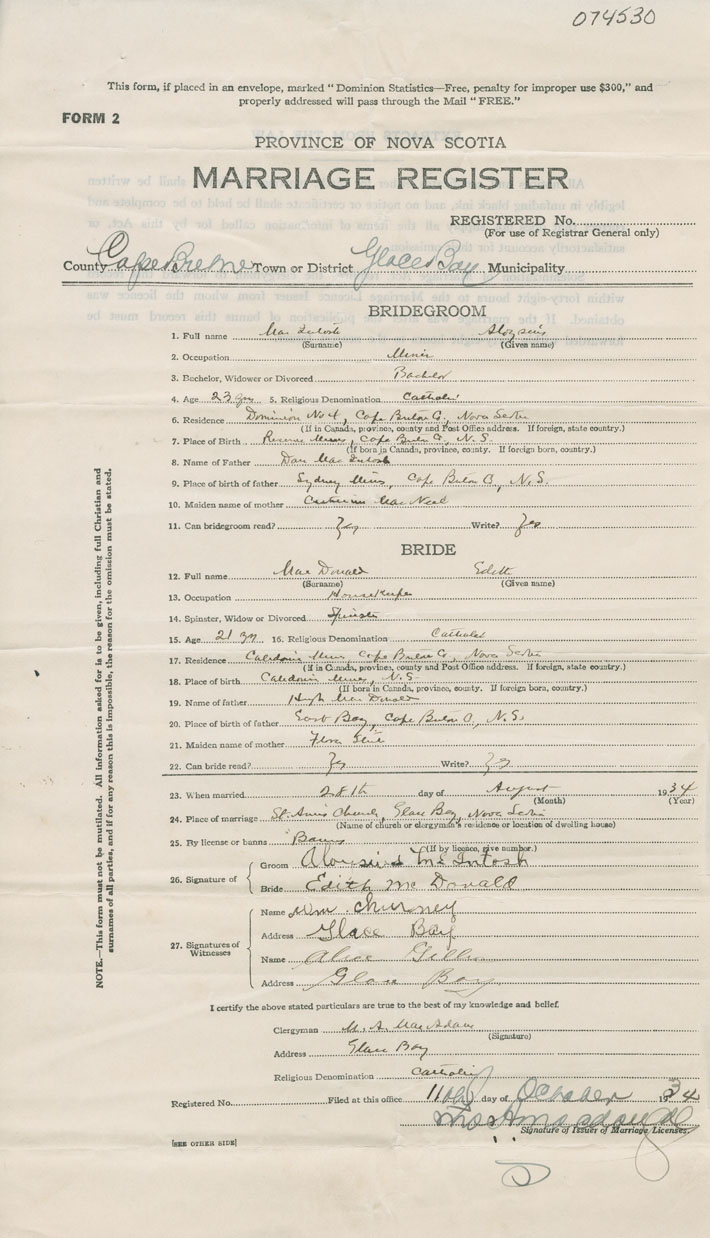 074530
This form, if placed in an envelope, marked "Dominion Statistics—Free, penalty for improper use $300," and
properly addressed will pass through the Mail "FREE."
FORM 2
PROVINCE OF NOVA SCOTIA
MARRIAGE REGISTER
REGISTERED No.
(For use of Registrar General only)
County Cape Breton Town or District Glace Bay Municipality
BRIDEGROOM
1. Full name Mac Intosh Aloysius
(Surname) (Given name)
2. Occupation Miner
3. Bachelor, Widower or Divorced Bachelor
4. Age 23 yrs 5. Religious Denomination Catholic
6. Residence Dominion No 4, Cape Breton Co, Nova Scotia
(If in Canada, province, county and Post Office address. If foreign, state country.)
7. Place of Birth Reserve Mines, Cape Breton Co, N. S.
(If born in Canada, province, county. If foreign born, country.)
8. Name of Father Dan Mac Intosh
9. Place of birth of father Sydney Mines, Cape Breton Co, N. S.
10. Maiden name of mother Catherine Mac Neil
11. Can bridegroom read? Yes Write? Yes
BRIDE
12. Full name Mac Donald Edith
(Surname) (Given name)
13. Occupation Housekeeper
14. Spinster, Widow or Divorced Spinster
15. Age 21 yrs 16. Religious Denomination Catholic
17. Residence Caledonia Mines, Cape Breton Co, Nova Scotia
(If in Canada, province, county and Post Office address. If foreign, state country.)
18. Place of birth Caledonia Mines, N. S.
(If born in Canada, province, county. If foreign born, country.)
19. Name of father Hugh Mac Donald
20. Place of birth of father East Bay, Cape Breton Co, N. S.
21. Maiden name of mother Flora
22. Can bride read? Yes Write? Yes
23. When married 28th day of August 1934
(Month) (Year)
24. Place of marriage St. Ann's Church, Glace Bay, Nova Scotia
(Name of church or clergyman's residence or location of dwelling house)
25. By license or banns Banns
(If by licence, give number.)
26. Signature of
Groom Alousius McIntosh
Bride Edith Mc Donald
27. Signatures of Witnesses
Name Wm Churney
Address Glace Bay
Name Alice Gillis
Address Glace Bay
I certify the above stated particulars are true to the best of my knowledge and belief.
Clergyman M. A. MacAdam
(Signature)
Address Glace Bay
Religious Denomination Catholic
Registered No. Filed at this office 11th day of October 1934
Signature of Issuer of Marriage Licenses.
[SEE OTHER SIDE]
NOTE.—This form must not be mutilated. All information asked for is to be given, including full Christian and
surnames of all parties, and if for any reason this is impossible, the reason for the omission must be stated.